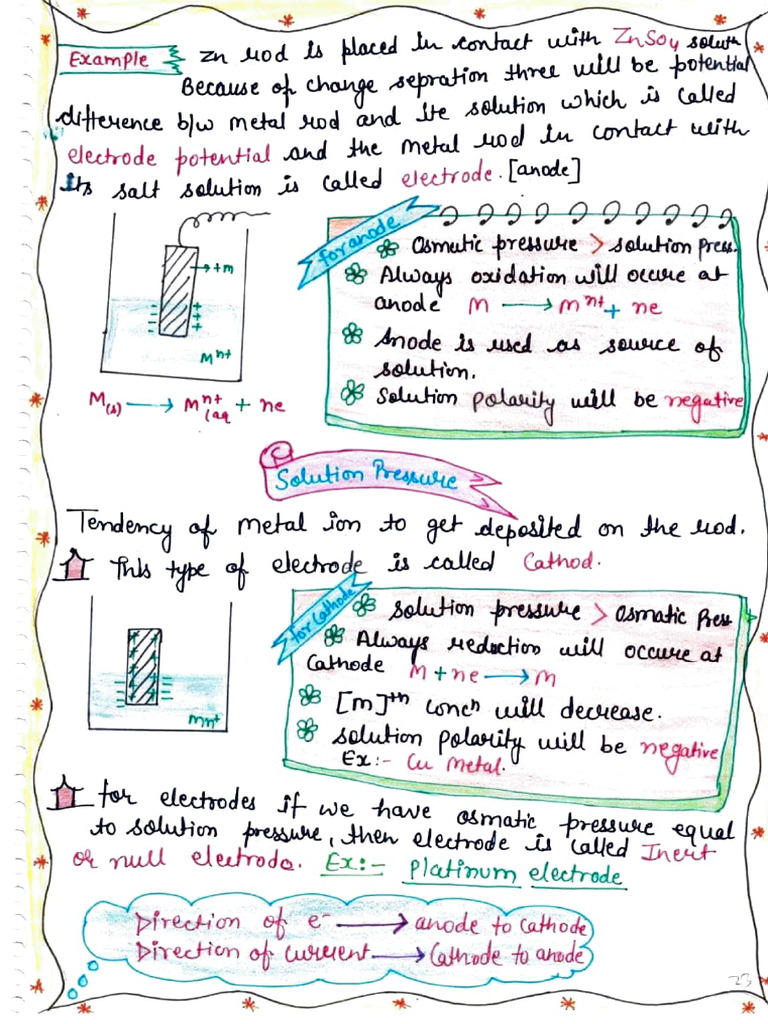 Example Zn rod is placed in contact with ZnSO4 soluth
Because of change sepration three will be potential
difference b/w metal rod and its solution which is called
electrode potential and the metal rod in contact with
its salt solution is called electrode. [anode]
for anode
Osmatic pressure > solution Press.
Always oxidation will occure at
anode M → M^n+ + ne
Anode is used as source of
solution.
Solution polarity will be negative
→ +m
+
+
+
M^n+
M(s) → M^n+ (aq + ne
Solution Pressure
Tendency of metal ion to get deposited on the rod.
This type of electrode is called Cathod.
for Cathode
Solution pressure > Osmatic Press
Always reduction will occure at
Cathode M + ne → M
[m]^th concn will decrease.
Solution polarity will be negative
Ex:- Cu Metal.
Mn+
for electrodes if we have osmatic pressure equal
to solution pressure, then electrode is called Inert
or null electrode. Ex:- Platinum electrode
Direction of e- → anode to cathode
Direction of current → Cathode to anode
23